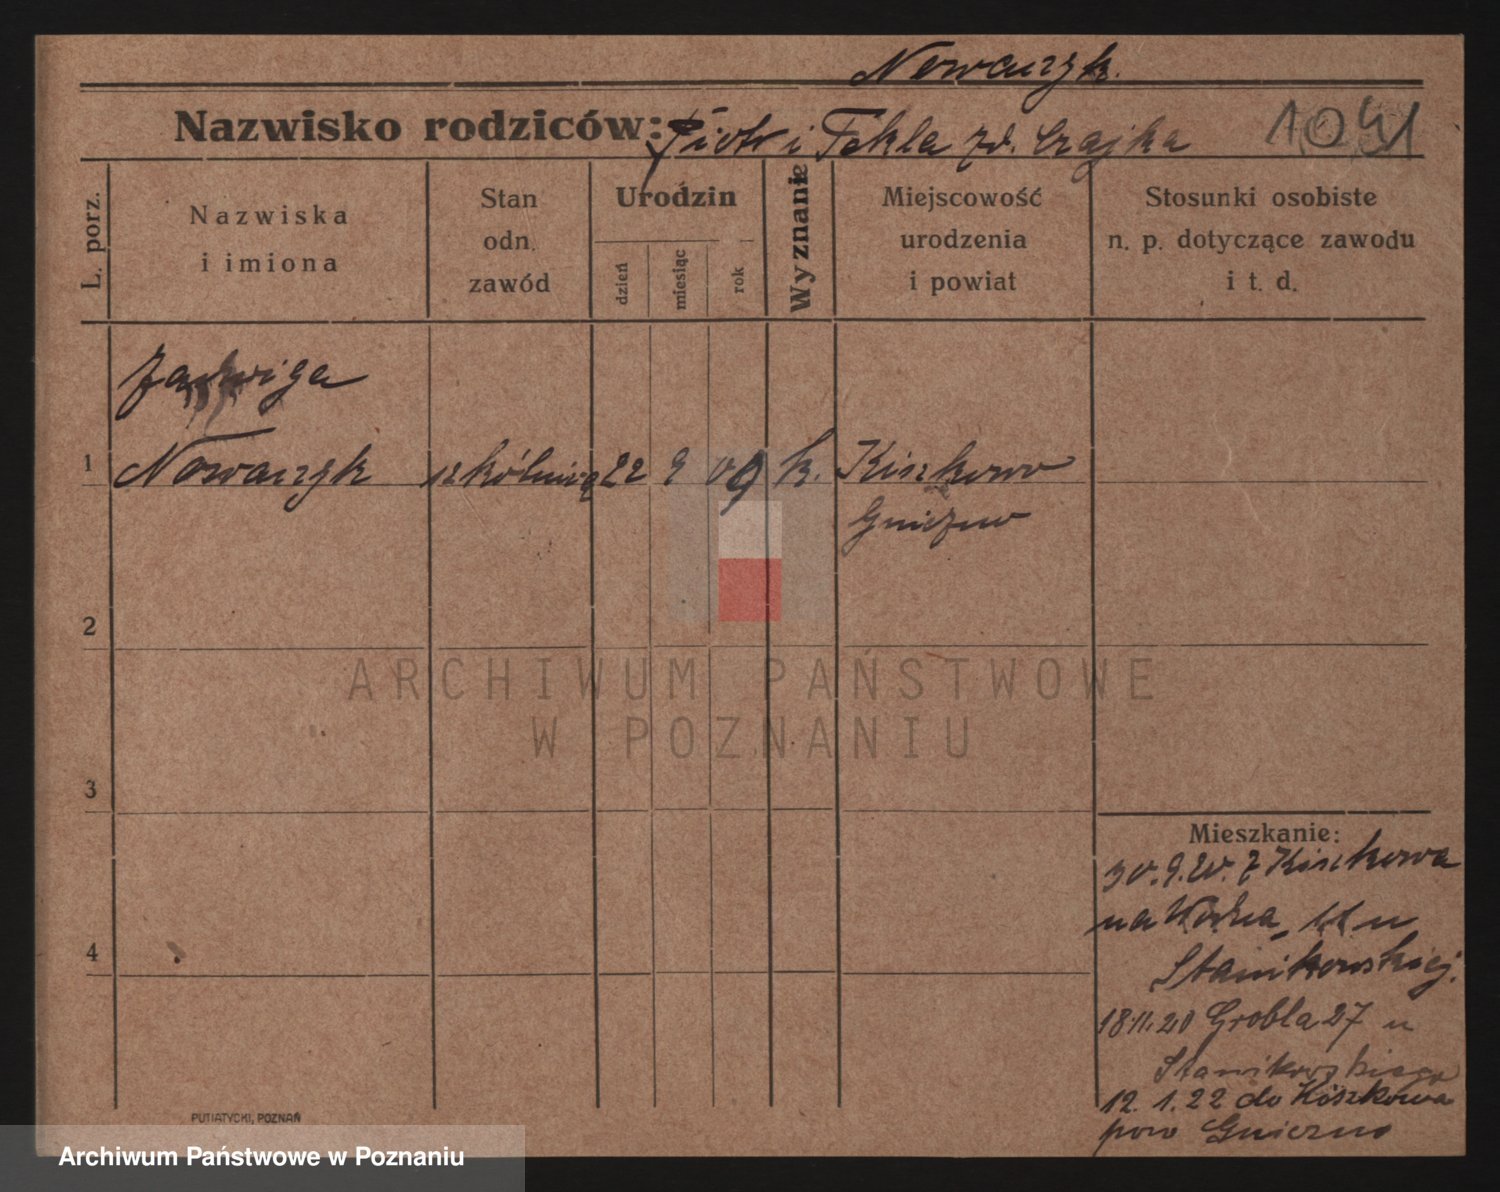 Nowaczyk.
Nazwisko rodziców: Piotr i Tekla zd. Czajka 1041
L. porz.
Nazwiska i imiona
Stan odn. zawód
Urodzin
dzień
miesiąc
rok
Wyznanie
Miejscowość urodzenia i powiat
Stosunki osobiste n. p. dotyczące zawodu i t. d.
Jadwiga
1 Nowaczyk szkólnicą 22 9 09 k. Kiszkowo
Gniezno
2
ARCHIWUM PAŃSTWOWE
W POZNANIU
3
Mieszkanie:
30.9.20. z Kiszkowa
na Wodna 11 u
Stanikowskiej.
4
18.11.20 Grobla 27 u
Stanikowskiego
12. 1. 22 do Kiszkowa
pow Gniezno
PUTIATYCKI, POZNAŃ
Archiwum Państwowe w Poznaniu